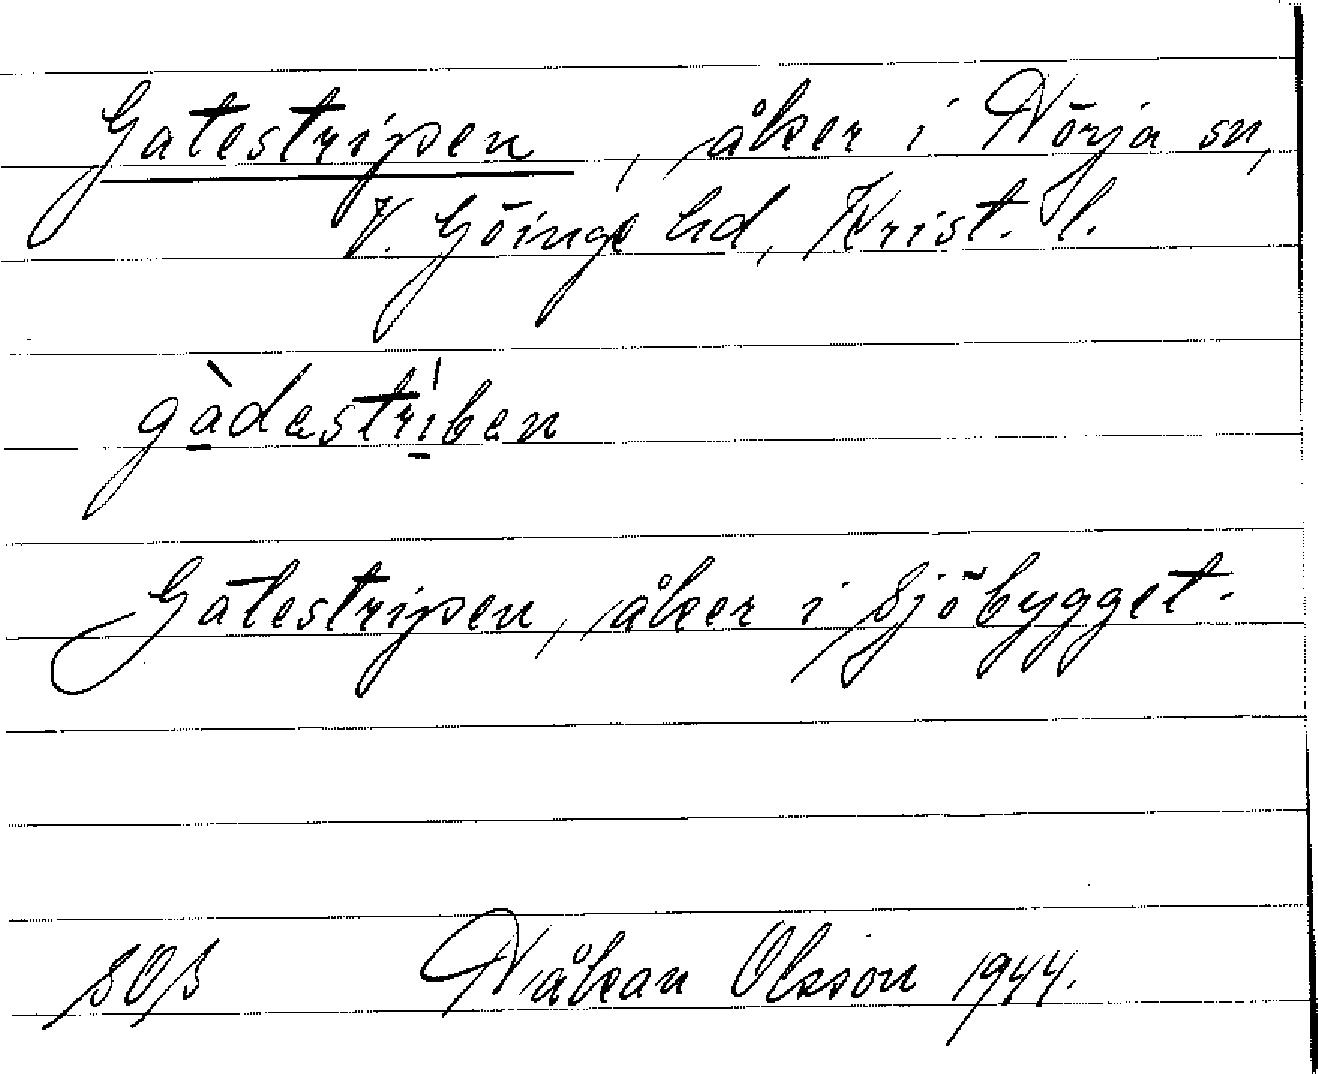 Gatestripen, åker i Nörja sn,
V. Göinge hd, Krist. l.
gàdestriben
Gatestripen, åker i Sjöbygget.
SOS Håkan Olsson 1944.